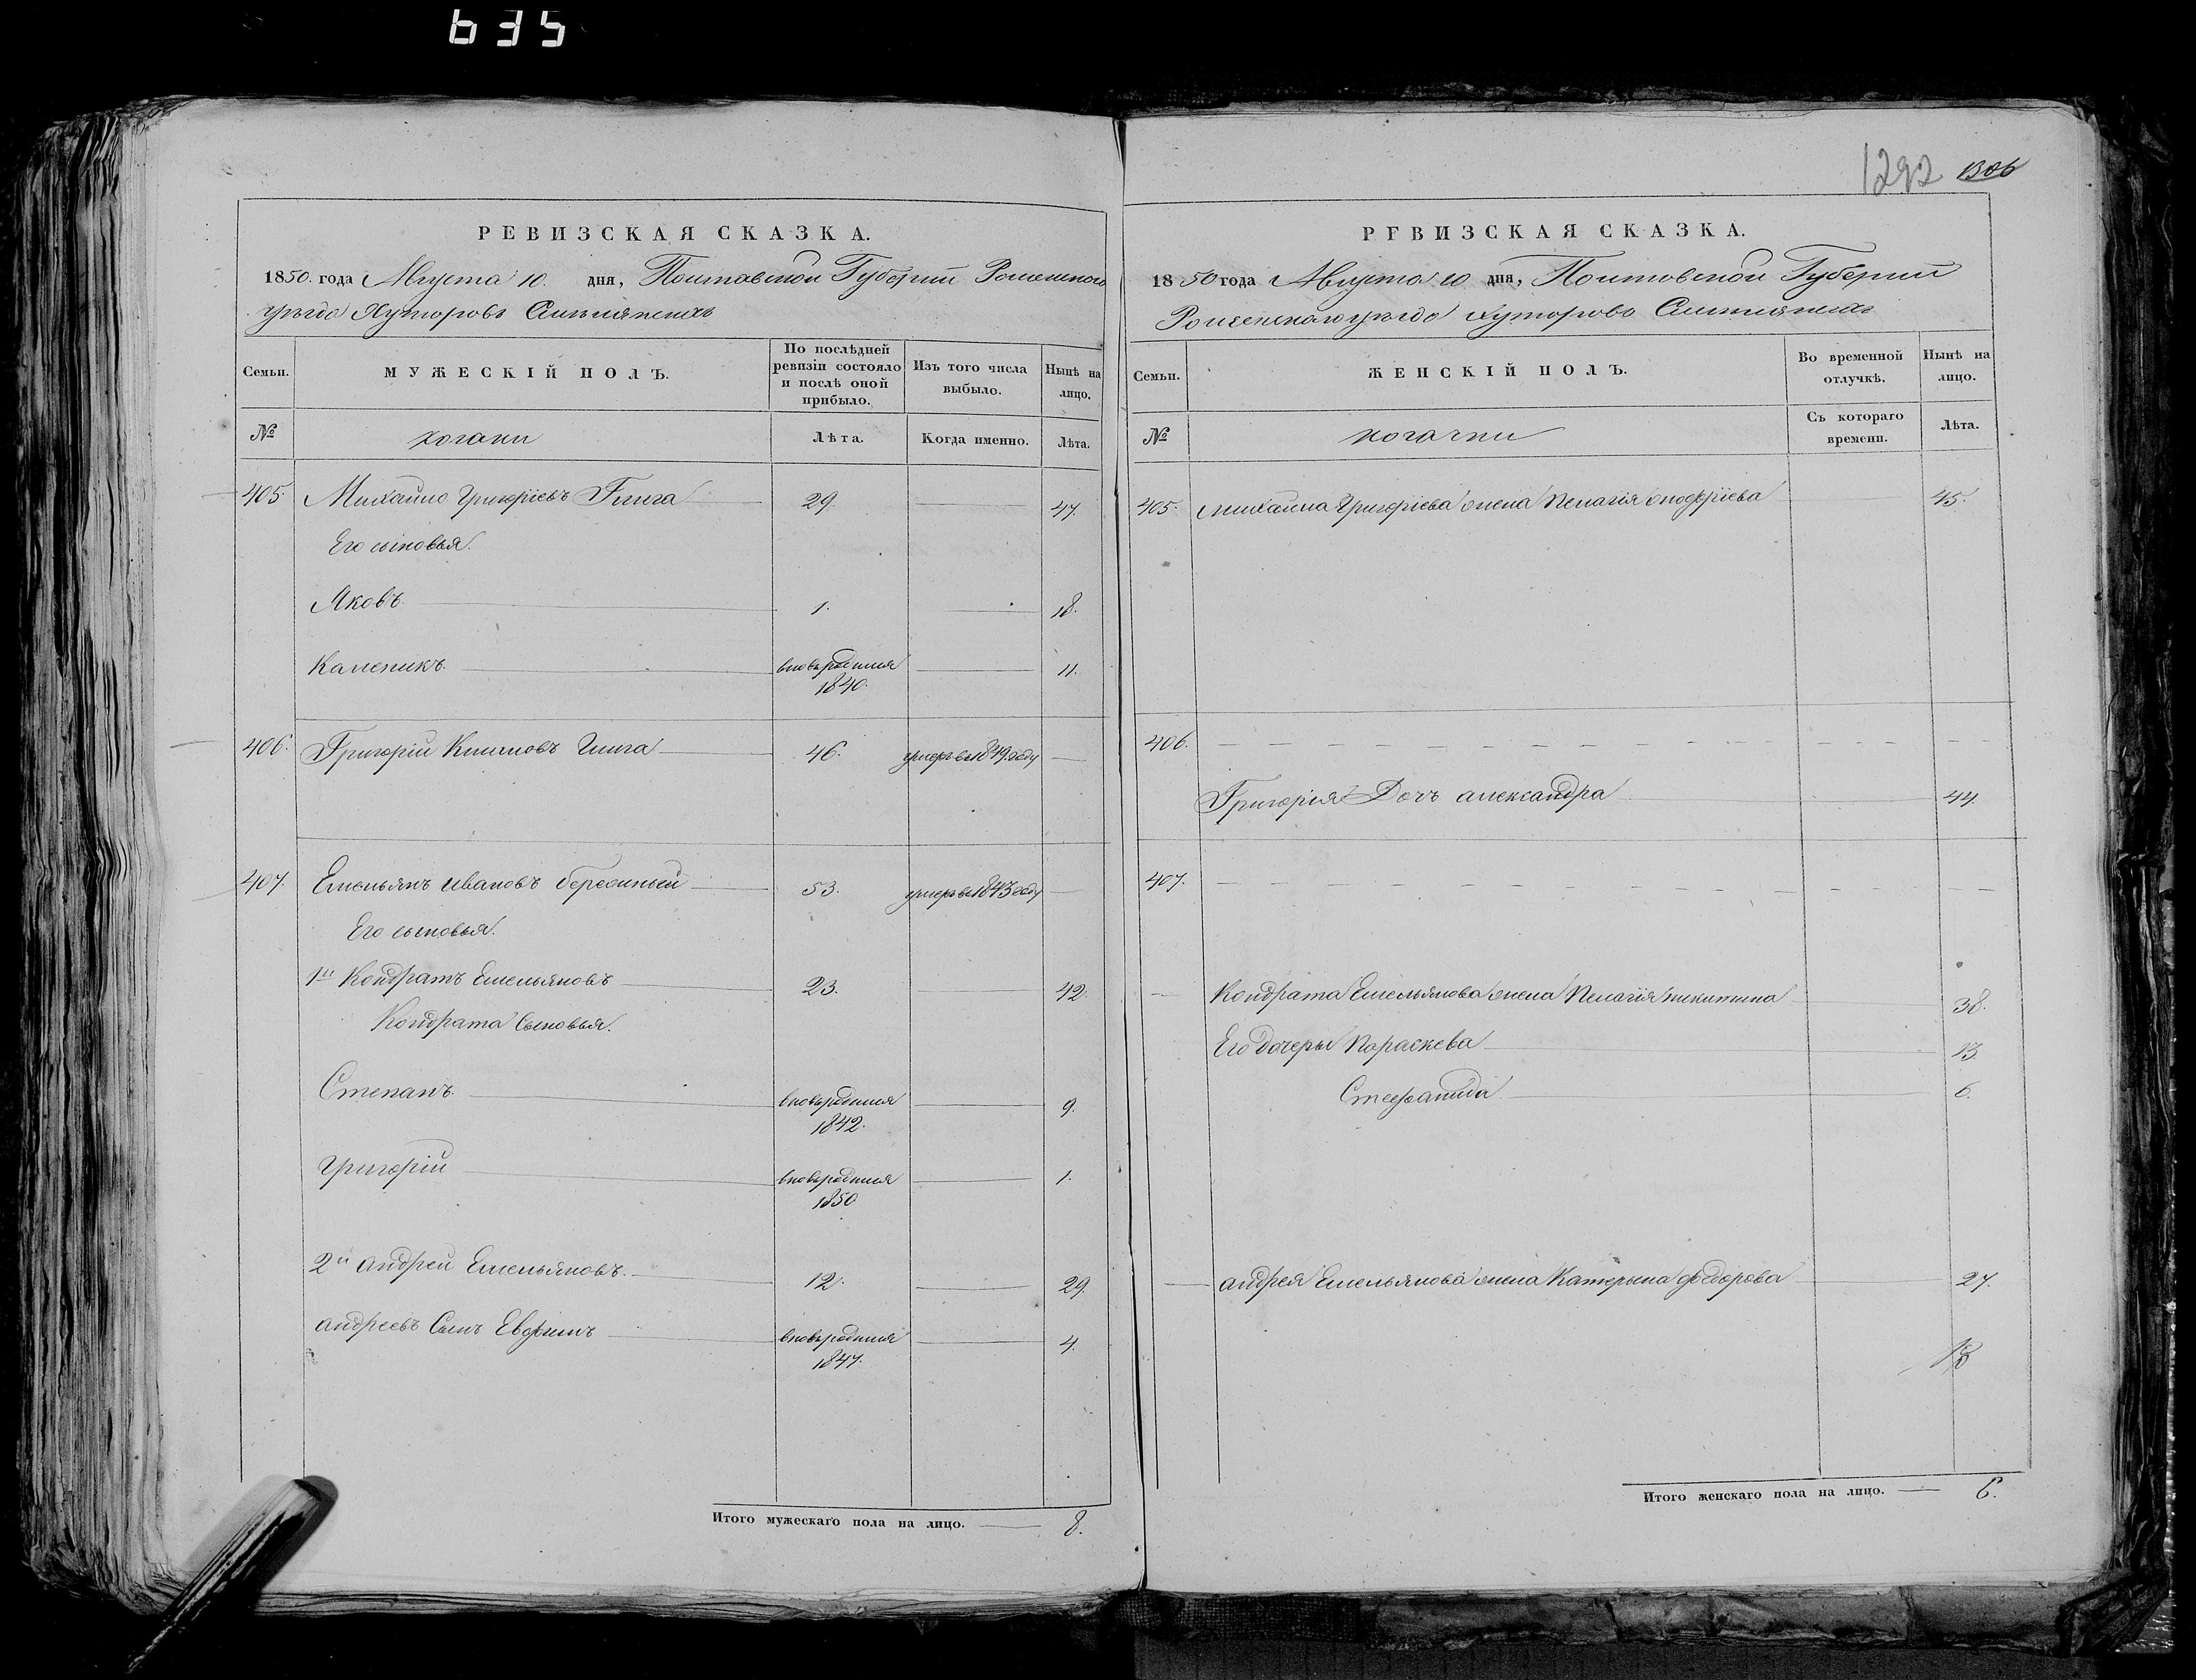 635
1292 1306
РЕВИЗСКАЯ СКАЗКА.
1850. года Августа 10. дня, Полтавской Губерніи Роменского
уѣзда Хуторовъ
Семьи.
МУЖЕСКІЙ ПОЛЪ.
По послѣдней ревизіи состояло и послѣ оной прибыло.
Изъ того числа выбыло.
Нынѣ на лицо.
№
козаки
Лѣта.
Когда именно.
Лѣта.
405. Михайло Григоріевъ Глига 29. 47.
Его сыновья.
Яковъ 1. 18.
Каленикъ вновьродился 11.
1840.
406. Григорій Климовъ Глига 46. умеръ въ 1849 году
407. Емельянъ Ивановъ 53. умеръ въ 1843 году
Его сыновья.
1й Кондратъ Емельяновъ 23. 42.
Кондрата Сыновья.
Степанъ вновьродился 9.
1842.
Григорій вновьродился 1.
1850
2й Андрей Емельяновъ 12. 29.
Андреевъ Сынъ Евфимъ вновьродился 4.
1847.
Итого мужескаго пола на лицо. 8.
РЕВИЗСКАЯ СКАЗКА.
1850 года Августа 10 дня, Полтавской Губерніи
Роменского уѣзда Хуторовъ
Семьи.
ЖЕНСКІЙ ПОЛЪ.
Во временной отлучкѣ.
Нынѣ на лицо.
№
козачки
Съ котораго времени.
Лѣта.
405. Михайла Григоріева жена Пелагія Онофріева 45.
406.
Григорія Дочь Александра 44.
407.
Кондрата Емельянова жена Пелагія Никитина 38.
Его дочеры Параскева 13.
Стефанида 6.
Андрея Емельянова жена Катерына Федорова 27.
Итого женскаго пола на лицо. 6.